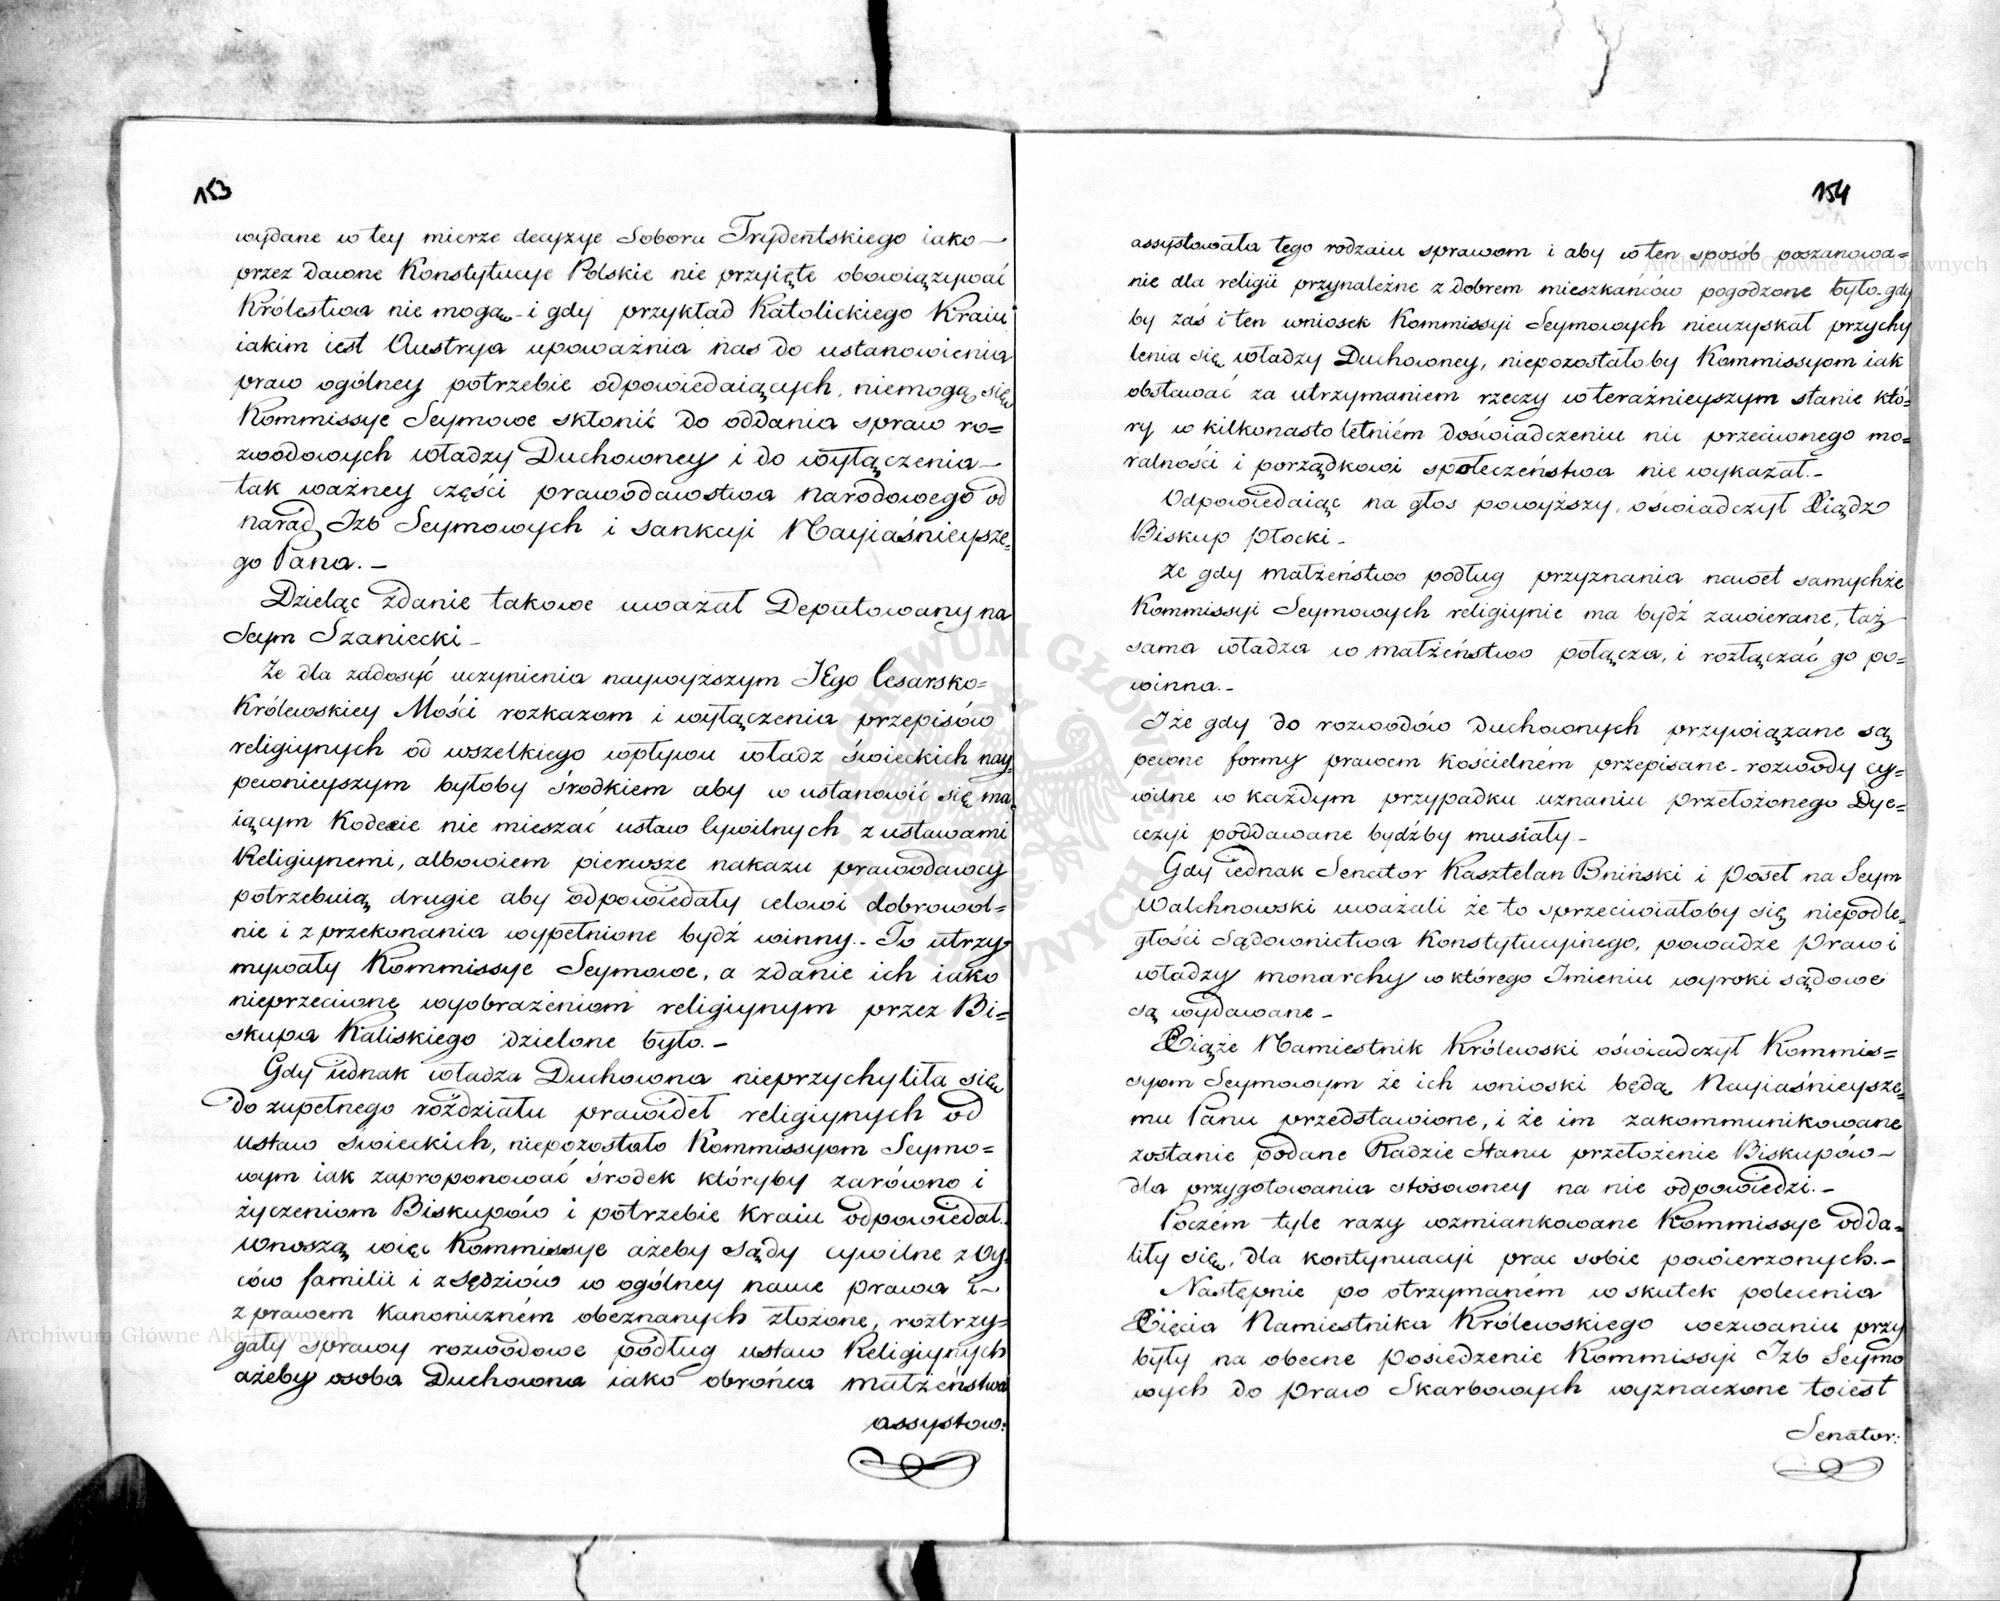 153
wydane w tey mierze decyzye Soboru Trydentskiego iako —
przez dawne Konstytucye Polskie nie przyięte obowiązywać
Królestwa nie mogą - i gdy przykład Katolickiego Kraiu
iakim iest Austrya upoważnia nas do ustanowienia
praw ogólney potrzebie odpowiedaiących, niemogą się
Kommissye Seymowe skłonić do oddania spraw ro=
zwodowych władzy Duchowney i do wyłączenia —
tak ważney części prawodawstwa narodowego od
narad Izb Seymowych i sankcyi Nayiaśnieysze=
go Pana. —
Dzieląc zdanie takowe uważał Deputowany na
Seym Szaniecki —
Że dla zadosyć uczynienia naywyższym JEgo Cesarsko=
Królewskiey Mości rozkazom i wyłączenia przepisów
religiynych od wszelkiego wpływu władz świeckich nay=
pewnieyszym byłoby środkiem aby w ustanowić się ma=
iącym Kodexie nie mieszać ustaw Cywilnych z ustawami
Religiynemi, albowiem pierwsze nakazu prawodawcy
potrzebuią drugie aby odpowiedały celowi dobrowol=
nie i z przekonania wypełnione bydź winny. - To utrzy=
mywały Kommissye Seymowe, a zdanie ich iako
nieprzeciwne wyobrażeniom religiynym przez Bi=
skupa Kaliskiego dzielone było. —
Gdy iednak władza Duchowna nieprzychyliła się
do zupełnego rozdziału prawideł religiynych od
ustaw świeckich, niepozostało Kommissyom Seymo=
wym iak zaproponować środek któryby zarówno i
życzeniom Biskupów i potrzebie Kraiu odpowiedał.
Wnoszą więc Kommissye ażeby sądy cywilne z Oy=
ców familii i z Sędziów w ogólney nauce prawa i —
z prawem kanoniczném obeznanych złożone, roztrzy=
gały sprawy rozwodowe podług ustaw Religiynych
ażeby osoba Duchowna iako obrońca małżeństwa
assystow:
154
assystowała tego rodzaiu sprawom i aby w ten sposób poszanowa=
nie dla religii przynależne z dobrem mieszkańców pogodzone było - gdy
by zaś i ten wniosek Kommissyi Seymowych nieuzyskał przychy
lenia się władzy Duchowney, niepozostałoby Kommissyom iak
obstawać za utrzymaniem rzeczy w teraźnieyszym stanie któ=
ry w kilkonastoletniém doświadczeniu nic przeciwnego mo=
ralności i porządkowi społeczeństwa nie wykazał. —
Odpowiedaiąc na głos powyższy, oświadczył Xiądz
Biskup Płocki —
że gdy małżeństwo podług przyznania nawet samychże
Kommissyi Seymowych religiynie ma bydź zawierane, taż
sama władza w małżeństwo połącza, i rozłączać go po=
winna. —
I że gdy do rozwodów duchownych przywiązane są
pewne formy prawem kościelném przepisane - rozwody cy=
wilne w każdym przypadku uznaniu przełożonego Dye=
cezyi poddawane bydźby musiały —
Gdy iednak Senator Kasztelan Bniński i Poseł na Seym
Walchnowski uważali że to sprzeciwiałoby się niepodle=
głości Sądownictwa Konstytucyinego, powadze Praw i
władzy monarchy w którego Imieniu wyroki sądowe
są wydawane —
Xiąże Namiestnik Królewski oświadczył Kommis=
syom Seymowym że ich wnioski będą Nayiaśnieysze=
mu Panu przedstawione, i że im zakommunikowane
zostanie podane Radzie Stanu przełożenie Biskupów —
dla przygotowania stósowney na nie odpowiedzi. —
Poczém tyle razy wzmiankowane Kommissye odda=
liły się, dla kontynuacyi prac sobie powierzonych. —
Następnie po otrzymaném w skutek polecenia
Xięcia Namiestnika Królewskiego wezwaniu przy
były na obecne posiedzenie Kommissyi Izb Seymo
wych do Praw Skarbowych wyznaczone toiest
Senator:
Archiwum Główne Akt Dawnych
Archiwum Główne Akt Dawnych
ARCHIWUM GŁÓWNE AKT DAWNYCH